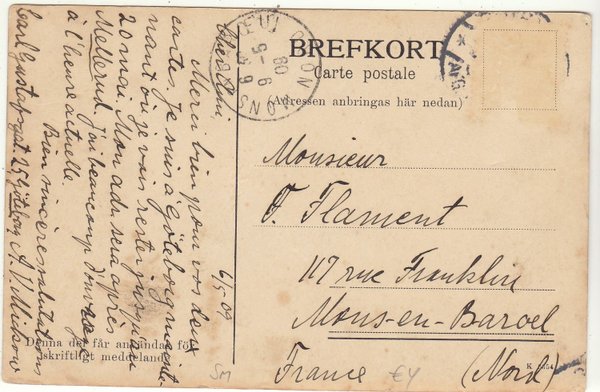 BREFKORT
Carte postale
(Adressen anbringas här nedan)
Monsieur
F. Flament
117 rue Franklin
Mons-en-Baroel
France (Nord)
6/5 09
Cher Ami
Merci bien pour vos deux
cartes. Je suis à Göteborg mainte-
nant où je vais rester jusqu'au
20 mai. Mon adr. sera après
Mellerud. J'ai beaucoup d'ouvrage
à l'heure actuelle.
Bien sincères salutations
Carl Gustafsgat. 25 Göteborg A. V.
Denna del får användas för
skriftligt meddelande.
SM
€4